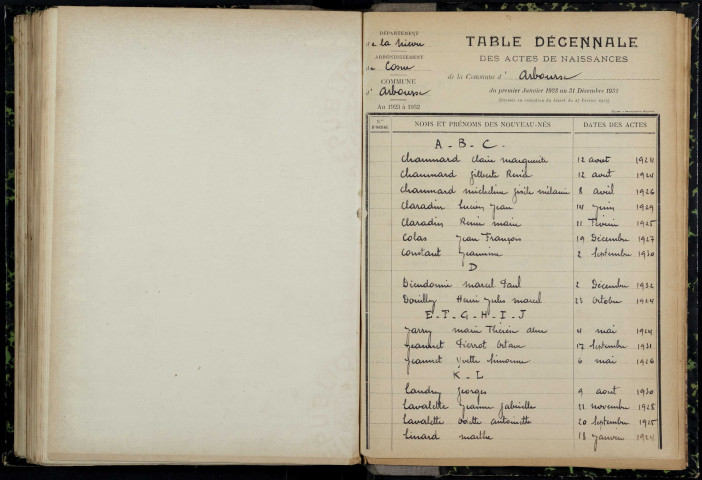 DÉPARTEMENT
de la Nièvre
ARRONDISSEMENT
de Cosne
COMMUNE
d'Arbourse
An 1923 à 1932
TABLE DÉCENNALE
DES ACTES DE NAISSANCES
de la Commune d'Arbourse
du premier Janvier 1923 au 31 Décembre 1932
N.os
D'ORDRE
NOMS ET PRÉNOMS DES NOUVEAU-NÉS
DATES DES ACTES
A - B - C -
Chaumard Claire marguerite 12 août 1924
Chaumard Gilberte Renée 12 août 1924
Chaumard micheline Gisèle mélanie 8 avril 1926
Claradin Lucien Jean 14 Juin 1929
Claradin Renée marie 11 Février 1925
Colas Jean François 19 Décembre 1927
Constant Jeanne 2 Septembre 1930
D
Dieudonné marcel Paul 2 Décembre 1932
Douilloy Henri Jules marcel 23 Octobre 1924
E - F - G - H - I - J
Jarry marie Thérèse 4 mai 1924
Jeannet Pierrot Octave 17 Septembre 1931
Jeannet Yvette Simonne 6 mai 1926
K - L
Landry Georges 9 août 1930
Lavalette Jeanne Gabrielle 11 novembre 1928
Lavalette Odette antoinette 20 Septembre 1925
Linard marthe 18 Janvier 1924